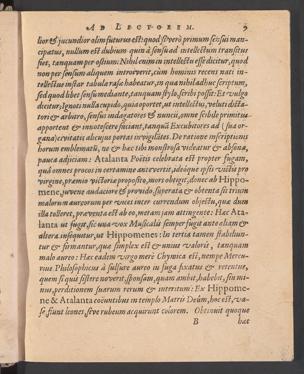 AD LECTOREM. 9
lior & jucundior olim futurus est: quod si verò primum sensui man-
cipatus, nullum est dubium quin à sensu ad intellectum transitus
fiet, tanquam per ostium: Nihil enim in intellectu esse dicitur, quod
non per sensum aliquem introiverit, cùm hominis recens nati in-
tellectus instar tabulæ rasæ habeatur, in qua nihil adhuc scriptum,
sed quod libet sensu mediante, tanquam stylo, scribi possit: Et vulgò
dicitur; Ignoti nulla cupido, quia oportet, ut intellectu, veluti dicta-
tore & arbitro, sensus indagatores & nuncii, omne scibile primitus
apportent & innotescere faciant, tanquā Excubitores ad (sua or-
gana) civitatis alicujus portas invigilātes. De ratione inscriptionis
horum emblematū, ne & hæc tibi monstrosa videatur & absona,
pauca adjiciam: Atalanta Poëtis celebrata est propter fugam,
quâ omnes procos in certamine antevertit, ideóque ipsis victis pro
virgine, præmio victoriæ proposito, mors obtigit, donec ab Hippo-
mene, juvene audaciore & provido, superata & obtenta sit trium
malorum aureorum per vices inter currendum objectu, quæ dum
illa tolleret, præventa est ab eo, metam jam attingente: Hæc Ata-
lanta ut fugit, sic una vox Musicalis semper fugit ante aliam &
altera insequitur, ut Hippomenes: In tertia tamen stabiliun-
tur & firmantur, quæ simplex est & unius valoris, tanquam
malo aureo: Hæc eadem virgo merè Chymica est, nempe Mercu-
rius Philosophicus à sulfure aureo in fuga fixatus & retentus,
quem si quis sistere noverit, sponsam, quam ambit, habebit, sin mi-
nus, perditionem suarum rerum & interitum: Ex Hippome-
ne & Atalanta coëuntibus in templo Matris Deûm, hoc est, va-
se fiunt leones, sive rubeum acquirunt colorem. Obtinuit quoque
B hæc